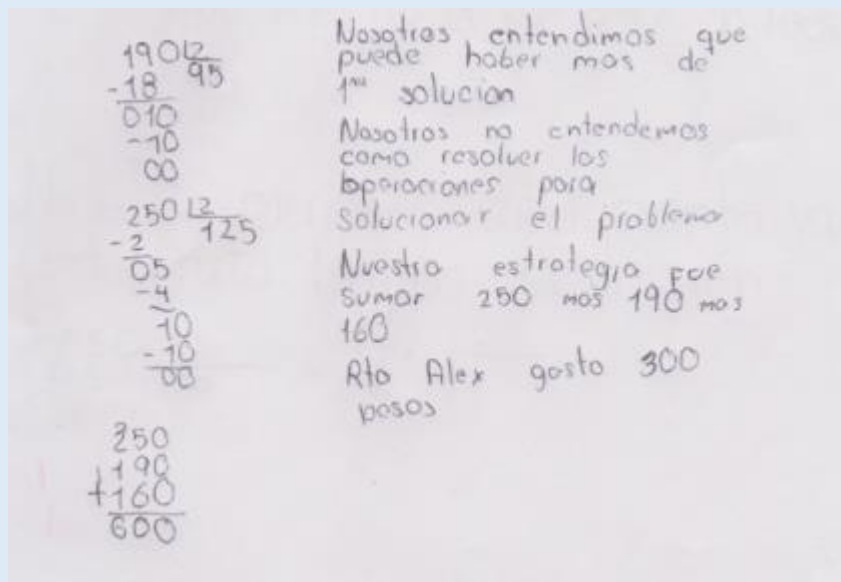 190 |2
95
-18
010
-10
00
250 |2
125
-2
05
-4
10
-10
00
250
190
+160
600
Nosotros entendimos que
puede haber mas de
1na solucion
Nosotros no entendemos
como resolver las
operaciones para
solucionar el problema
Nuestra estrategia fue
sumar 250 mas 190 mas
160
Rta Alex gasto 300
pesos